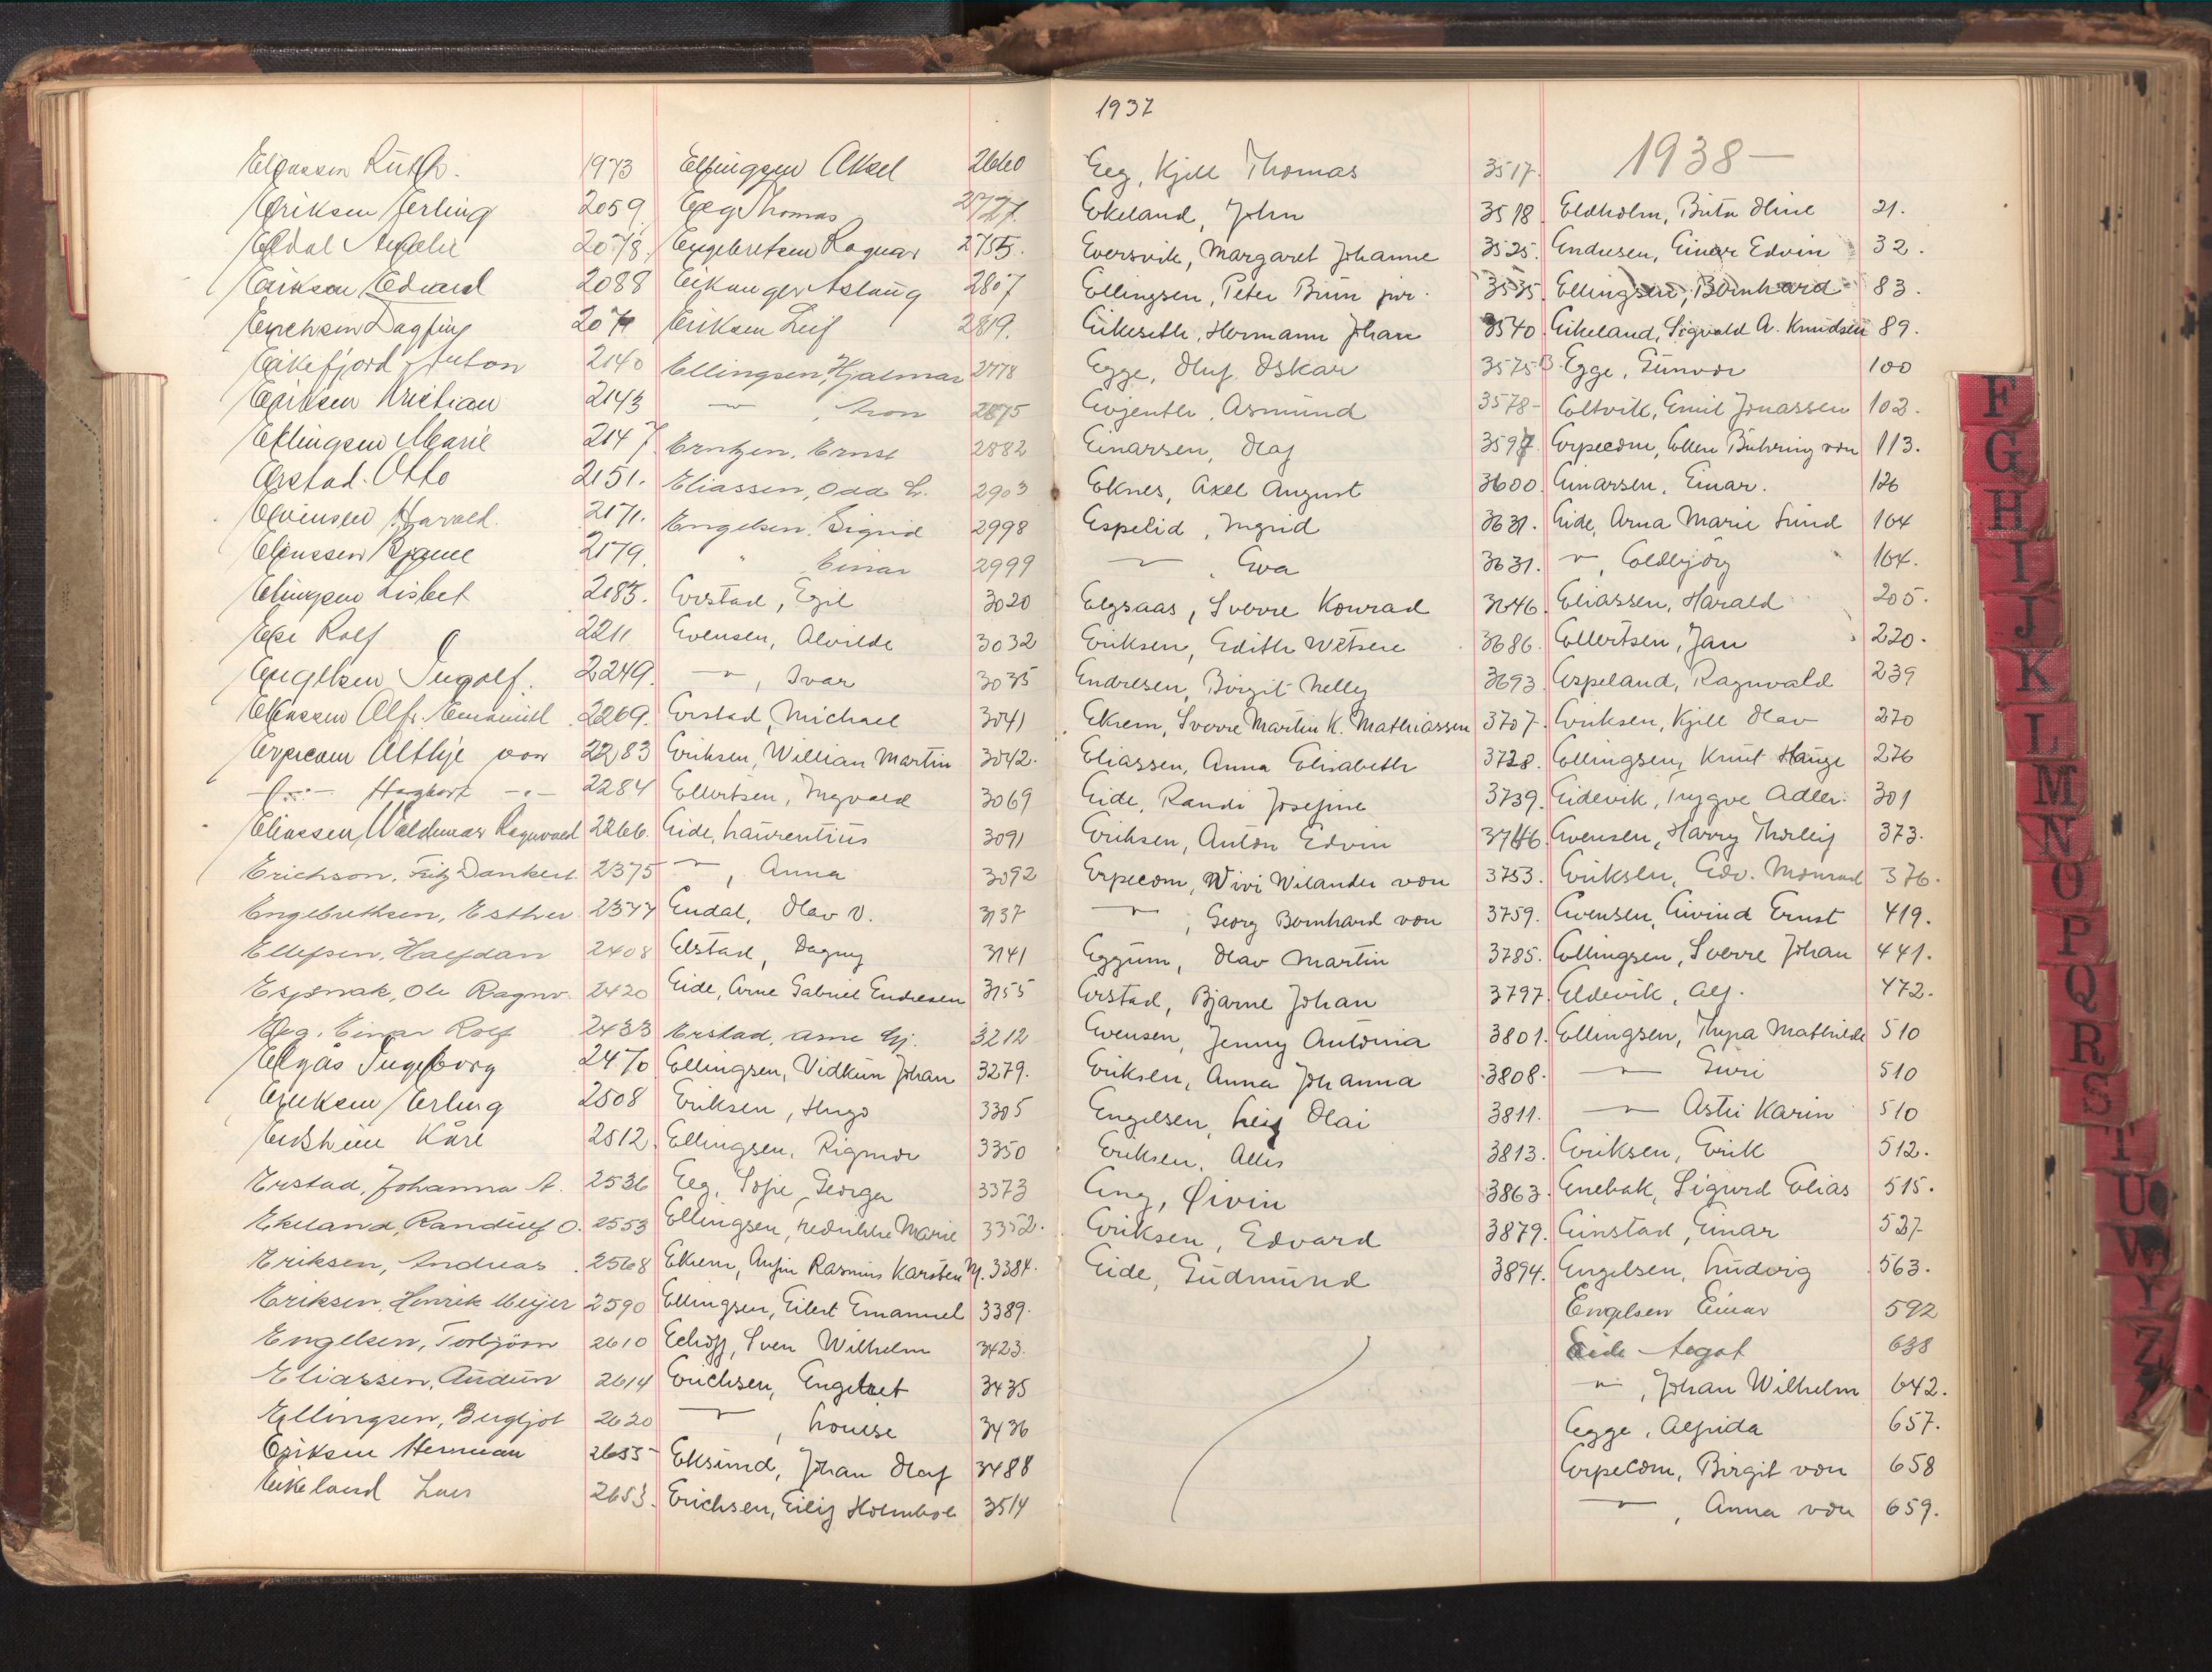 Eliassen Ruth. 1973
Eriksen Erling 2059
Eldal 2078.
Eriksen Edvard 2088
Erichsen Dagfinn 207
Eikefjord Anton 2140
Eriksen Kristian 2143
Ellingsen Marie 2147
Erstad. Otto 2151.
Evensen Harald. 2171.
Eliassen Bjarne 2179.
Ellingsen Lisbet 2185.
Eye Rolf 2211
Engelsen Ingolf. 2249.
Eliassen Alfr. Emanuel 2269.
Erpecom Althje von 2283
Hagbart 2284
Eliassen Waldemar Ragnvald 2266.
Erichson, Fritz Dankert. 2375
Engebrethsen, Esther 2377
Ellefsen, Halfdan 2408
Ole Ragnv. 2420
Eeg, Einar Rolf 2433
Elgås Ingeborg 2470
Eriksen Erling 2508
Kåre 2512
Erstad, Johanna A. 2536
Ekeland, Randulf O. 2553
Eriksen, Andreas 2568
Eriksen, Henrik Meijer 2590
Engelsen, Torbjörn 2610
Eliassen, Audun 2614
Ellingsen, Bergljot 2620
Eriksen Herman 2655
Eikeland Lars 2653.
Ellingsen Aksel 2660
Eeg Thomas 2727.
Engebretsen Ragnar 2755.
Eikanger Aslaug 2807
Eriksen Leif 2819.
Ellingsen, Hjalmar 2778
" , Aron 2875
Erntzen, Ernst 2882
Eliassen, Odd L. 2903
Engelsen, Sigrid 2998
" Einar 2999
Erstad, Egil 3020
Evensen, Alvilde 3032
" , Ivar 3035
Erstad, Michael 3041
Eriksen, Willian Martin 3042.
Ellertsen, Ingvald 3069
Eide, Laurentius 3091
" , Anna 3092
Endal, Olav O. 3137
Elstad, Dagny 3141
Eide, Arne Gabriel Endresen 3155
Erstad, Arne Gj. 3212
Ellingsen, Vidkun Johan 3279.
Eriksen, Hugo 3305
Ellingsen, Rigmor 3350
Eeg, Sofie Georga 3373
Ellingsen, Marie 3352.
Ekrem, Rasmus Karsten M. 3384.
Ellingsen, Eilert Emanuel 3389.
Echoff, Sven Wilhelm 3423.
Erichsen, Engebret 3435
" , Louise 3436
Eksund, Johan Olaf 3488
Erichsen, Eilif Holmboe 3514
1937
Eeg, Kjell Thomas 3517.
Ekeland, John 3518.
Eversvik, Margaret Johanne 3525.
Ellingsen, Peter Bruun jnr. 3535.
Eikeseth, Hermann Johan 3540.
Egge, Oluf Oskar 3575B
Evjenth, Asmund 3578-
Einarsen, Olaf 3597
Eknes, Axel August 3600.
Espelid, Ingrid 3631.
" , Eva 3631.
Elgsaas, Sverre Konrad 3646.
Eriksen, Edith Wetsere 3686.
Endresen, Birgit Nelly 3693
Ekrem, Sverre Martin K. Mathiassen 3707.
Eliassen, Anna Elisabeth 3728.
Eide, Randi Josefine 3739.
Eriksen, Anton Edvin 3746.
Erpecom, Wivi Wilander von 3753.
" , Georg Bernhard von 3759.
Eggum, Olav Martin 3785.
Erstad, Bjarne Johan 3797.
Evensen, Jenny Antonia 3801.
Eriksen, Anna Johanna 3808.
Engelsen, Leif Olai 3811.
Eriksen, Allis 3813.
Eng, Øivin 3863.
Eriksen, Edvard 3879.
Eide, Gudmund 3894.
1938—
Eldholm, Brita Oline 21.
Endresen, Einar Edvin 32.
Ellingsen, Bernhard 83.
Eikeland, Sigvald A. Knudsen 89.
Egge, Gunvor 100
Eltvik, Emil Jonassen 102.
Erpecom, Ellen Bühring von 113.
Einarsen, Einar. 126
Eide, Arna Marie Lund 164
" , Eldbjörg 164.
Eliassen, Harald 205.
Ellertsen, Jan 220.
Espeland, Ragnvald 239
Eriksen, Kjell Olav 270
Ellingsen, Knut Hauge 276
Eidevik, Trygve Adler. 301
Evensen, Harry Thorleif 373.
Eriksen, Edv. Monrad 376.
Evensen, Eivind Ernst 419.
Ellingsen, Sverre Johan 441.
Eldevik, Alf. 472.
Ellingsen, Thyra Mathilde 510
" Siri 510
" Astri Karin 510
Eriksen, Erik 512.
Enebak, Sigurd Elias 515.
Einstad, Einar 527
Engelsen, Ludvig 563.
Engelsen Einar 592
Eide Aagot 638
" , Johan Wilhelm 642.
Egge, Alfrida 657.
Erpecom, Birgit von 658
" , Anna von 659.
F
G
H
I
J
K
L
M
N
O
P
Q
R
S
T
U
W
Y
Z